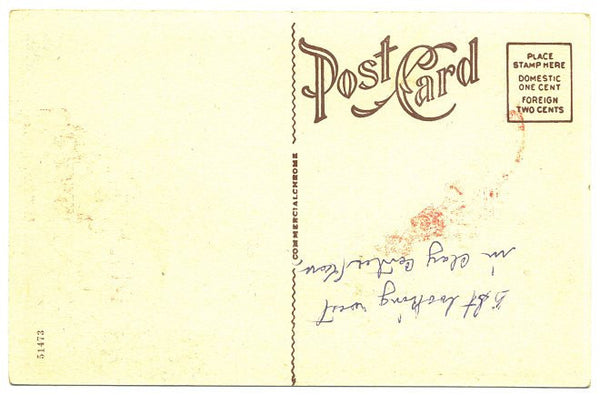 Post Card
PLACE
STAMP HERE
DOMESTIC
ONE CENT
FOREIGN
TWO CENTS
COMMERCIALCHROME
5 St looking west
in Clay Center
51473